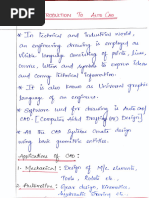 INTRODUCTION TO AUTO CAD
* In technical and industrial world,
an engineering drawing is employed as
visible language consisting of points, lines,
curves, letters and symbols to express ideas
and convey technical information.
* It is also known as Universal graphic
language of an engineers.
* Software used for drawing is Auto CAD
CAD-[Computer Aided Drafting (OR) Design]
* As the CAD systems create design
using basic geometric entities.
Applications of CAD:-
1. Mechanical: Design of M/c elements,
Tools, Robots etc.
2. Automotive: Space design, Kinematics,
Hydraulic Steering etc.